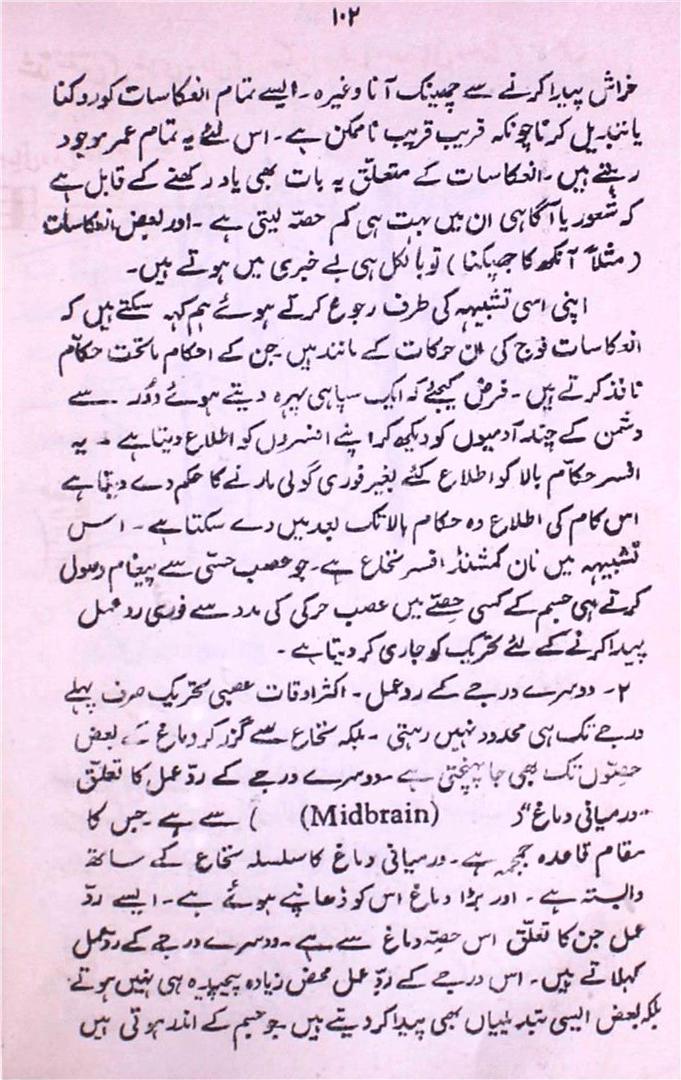 ۱۰۲
خراش پیدا کرنے سے چھینک آنا وغیرہ۔ ایسے تمام انعکاسات کو روکنا
یا تبدیل کرنا چونکہ قریب قریب ناممکن ہے۔ اس لئے یہ تمام عمر موجود
رہتے ہیں۔ انعکاسات کے متعلّق یہ بات بھی یاد رکھنے کے قابل ہے
کہ شعور یا آگاہی ان میں بہت ہی کم حصّہ لیتی ہے۔ اور بعض انعکاسات
(مثلاً آنکھ کا جھپکنا) تو بالکل ہی بے خبری میں ہوتے ہیں۔
اپنی اسی تشبیہہ کی طرف رجوع کرتے ہوئے ہم کہہ سکتے ہیں کہ
انعکاسات فوج کی ان حرکات کے مانند ہیں جن کے احکام ماتحت حکّام
نافذ کرتے ہیں۔ فرض کیجئے کہ ایک سپاہی پہرہ دیتے ہوئے دُور سے
دشمن کے چند آدمیوں کو دیکھ کر اپنے افسروں کو اطلاع دیتا ہے۔ یہ
افسر حکّام بالا کو اطلاع کئے بغیر فوری گولی مارنے کا حکم دے دیتا ہے
اس کام کی اطلاع وہ حکام بالا تک بعد میں دے سکتا ہے۔ اس
تشبیہہ میں نان کمشنڈ افسر نخاع ہے۔ جو عصب حسّی سے پیغام وصول
کرتے ہی جسم کے کسی حِصّے میں عصب حرکی کی مدد سے فوری ردعمل
پیدا کرنے کے لئے تحریک کو جاری کر دیتا ہے۔
۲۔ دوسرے درجے کے ردعمل۔ اکثر اوقات عصبی تحریک صرف پہلے
درجے تک ہی محدود نہیں رہتی۔ بلکہ نخاع سے گزر کر دماغ کے بعض
حصّوں تک بھی جا پہنچتی ہے۔ دوسرے درجے کے ردّعمل کا تعلّق
"درمیانی دماغ" ( (Midbrain) ) سے ہے جس کا
مقام قاعدہ جمجمہ ہے۔ درمیانی دماغ کا سلسلہ نخاع کے ساتھ
وابستہ ہے۔ اور بڑا دماغ اس کو ڈھانپے ہوئے ہے۔ ایسے ردّ
عمل جن کا تعلّق اس حصّہ دماغ سے ہے۔ دوسرے درجے کے ردّعمل
کہلاتے ہیں۔ اس درجے کے ردّعمل محض زیادہ پیچیدہ ہی نہیں ہوتے
بلکہ بعض ایسی تبدیلیاں بھی پیدا کر دیتے ہیں جو جسم کے اندر ہوتی ہیں